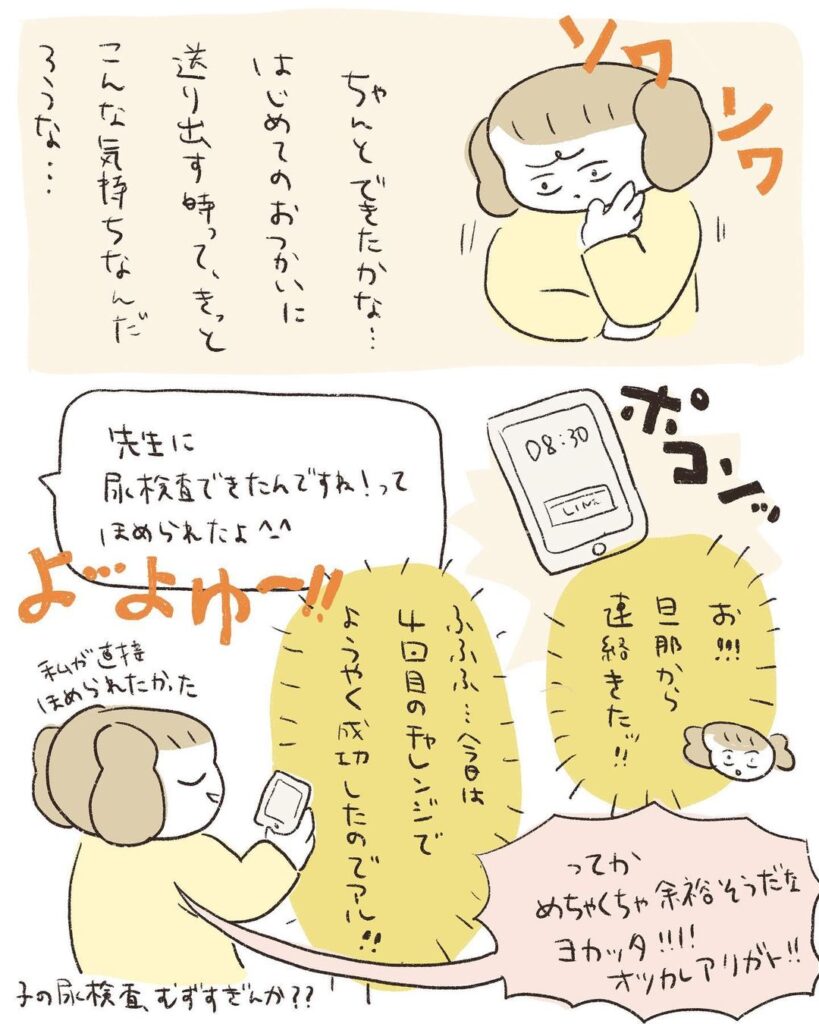 ソワ
ソワ
ちゃんとできたかな…
はじめてのおつかいに
送り出す時って、きっと
こんな気持ちなんだ
ろうな…
ポコンッ
08:30
LINE
お!!!
旦那から
連絡きたッ!!
先生に
尿検査できたんですね!って
ほめられたよ^-^
よ…よゆ〜!!
私が直接
ほめられたかった
ふふふ…今日は
4回目のチャレンジで
ようやく成功したのでアル!!
ってか
めちゃくちゃ余裕そうだな
ヨカッタ!!!!
オツカレアリガト!!
子の尿検査、むずすぎんか??